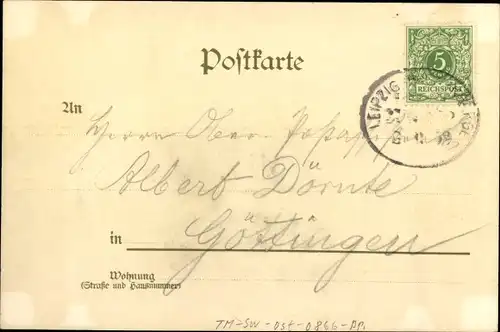 Postkarte
5
REICHSPOST
LEIPZIG
An
Herrn Ober
Albert Dörnte
in Göttingen
Wohnung
(Straße und Hausnummer)
TM-SW-Ost-0866-AP.